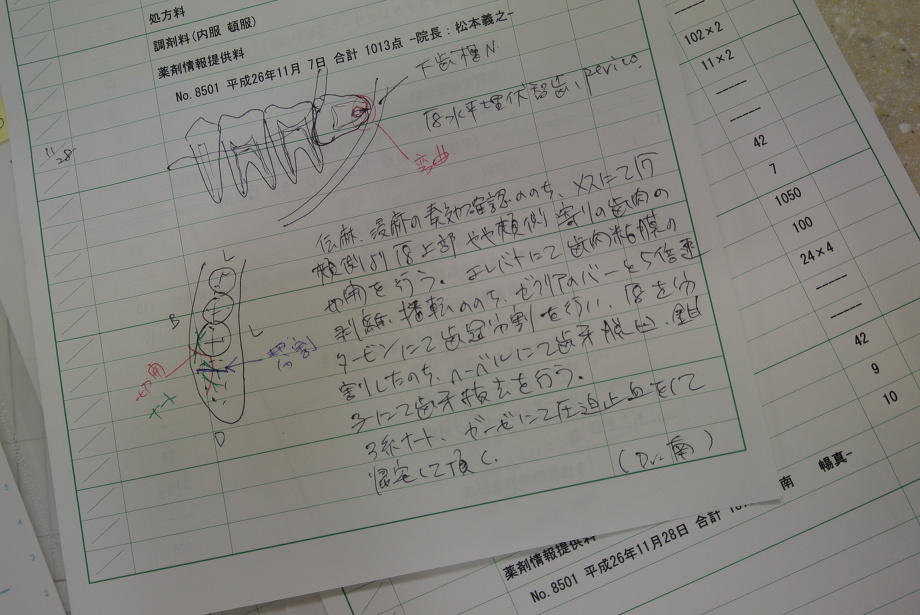 処方料
調剤料(内服 頓服)
薬剤情報提供料
No.8501 平成26年11月 7日 合計 1013点 -院長:松本義之-
11/28
下歯槽N
水平埋伏智歯、perico.
弯曲
伝麻、浸麻の奏効確認ののち、メスにて
頬側より 8 上部 やや頬側 寄りの歯肉の
切開を行う。エレバトにて歯肉粘膜の
剥離、ののち、ゼクリアのバーと5倍速
タービンにて歯冠分割を行い、8 を分
割したのち、ヘーベルにて歯牙脱臼、鉗
子にて歯牙抜去を行う。
3糸ナート、ガーゼにて圧迫止血をして
帰宅して頂く。
(Dr. 南)
L
B
L
切開
分割
D
102×2
11×2
42
7
1050
100
24×4
42
9
10
南 暢真-
薬剤情報提供料
No.8501 平成26年11月28日 合計